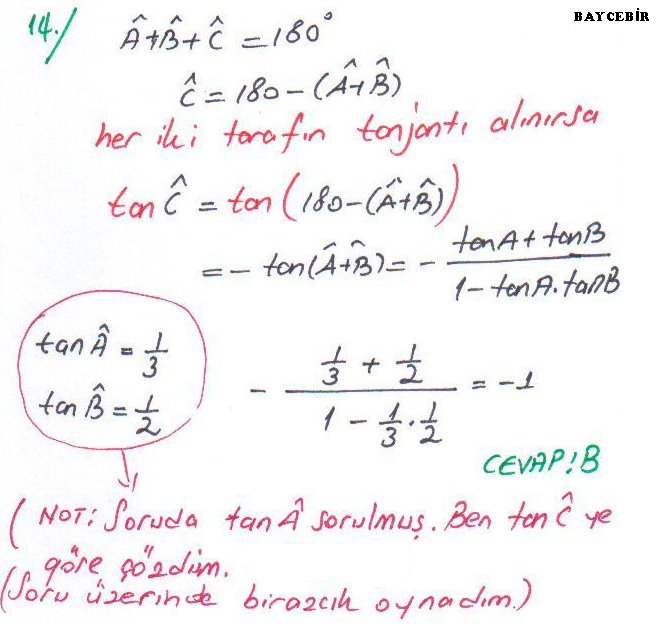 BAYCEBİR
14./ Â+B̂+Ĉ = 180°
Ĉ = 180 - (Â+B̂)
her iki tarafın tanjantı alınırsa
tan Ĉ = tan (180-(Â+B̂))
= - tan(Â+B̂) = - (tanA + tanB) / (1 - tanA.tanB)
tan Â = 1/3
tan B̂ = 1/2
- (1/3 + 1/2) / (1 - 1/3 . 1/2) = -1
CEVAP!B
( NOT: Soruda tan Â sorulmuş. Ben tan Ĉ ye
göre çözdüm.
(Soru üzerinde birazcık oynadım.)